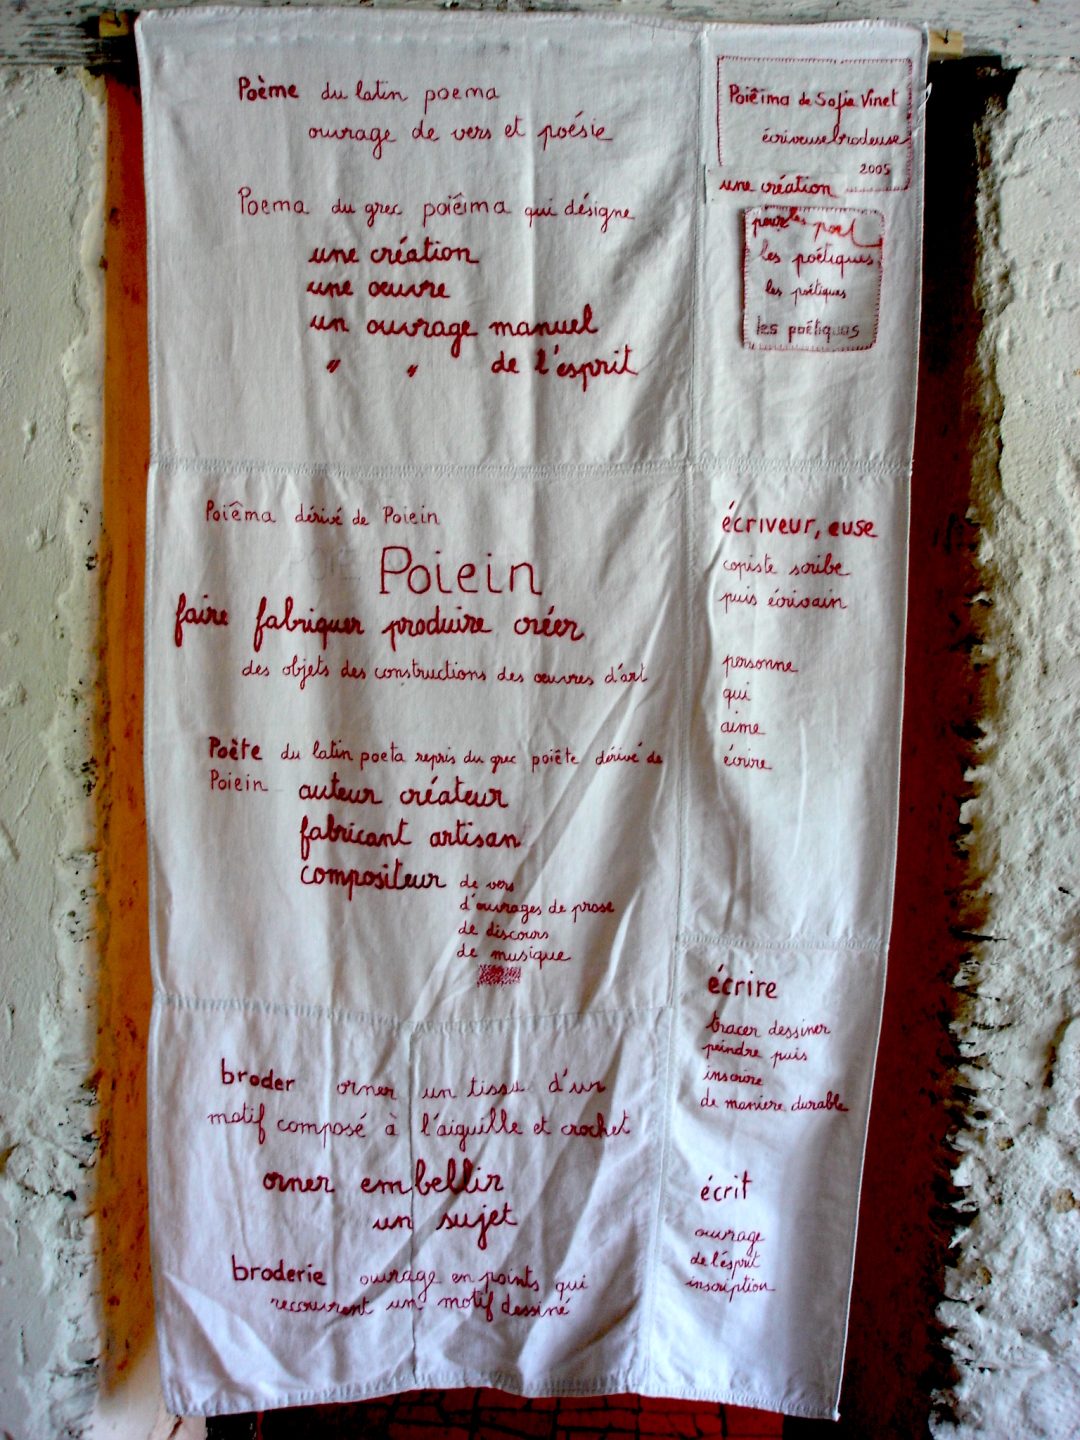 Poème du latin poema
ouvrage de vers et poésie
Poema du grec poiêima qui désigne
une création
une œuvre
un ouvrage manuel
〃 〃 de l'esprit
Poiêma dérivé de Poiein
Poiein
faire fabriquer produire créer
des objets des constructions des œuvres d'art
Poète du latin poeta repris du grec poiête dérivé de
Poiein auteur créateur
fabricant artisan
compositeur de vers
d'ouvrages de prose
de discours
de musique
broder orner un tissu d'un
motif composé à l'aiguille et crochet
orner embellir
un sujet
broderie ouvrage en points qui
recouvrent un motif dessiné
Poiêima de Sofie Vinet
écriveuse brodeuse
2005
une création
pour les poet
les poétiques
les poétiques
les poétiques
écriveur, euse
copiste scribe
puis écrivain
personne
qui
aime
écrire
écrire
tracer dessiner
peindre puis
inscrire
de maniere durable
écrit
ouvrage
de l'ésprit
inscription